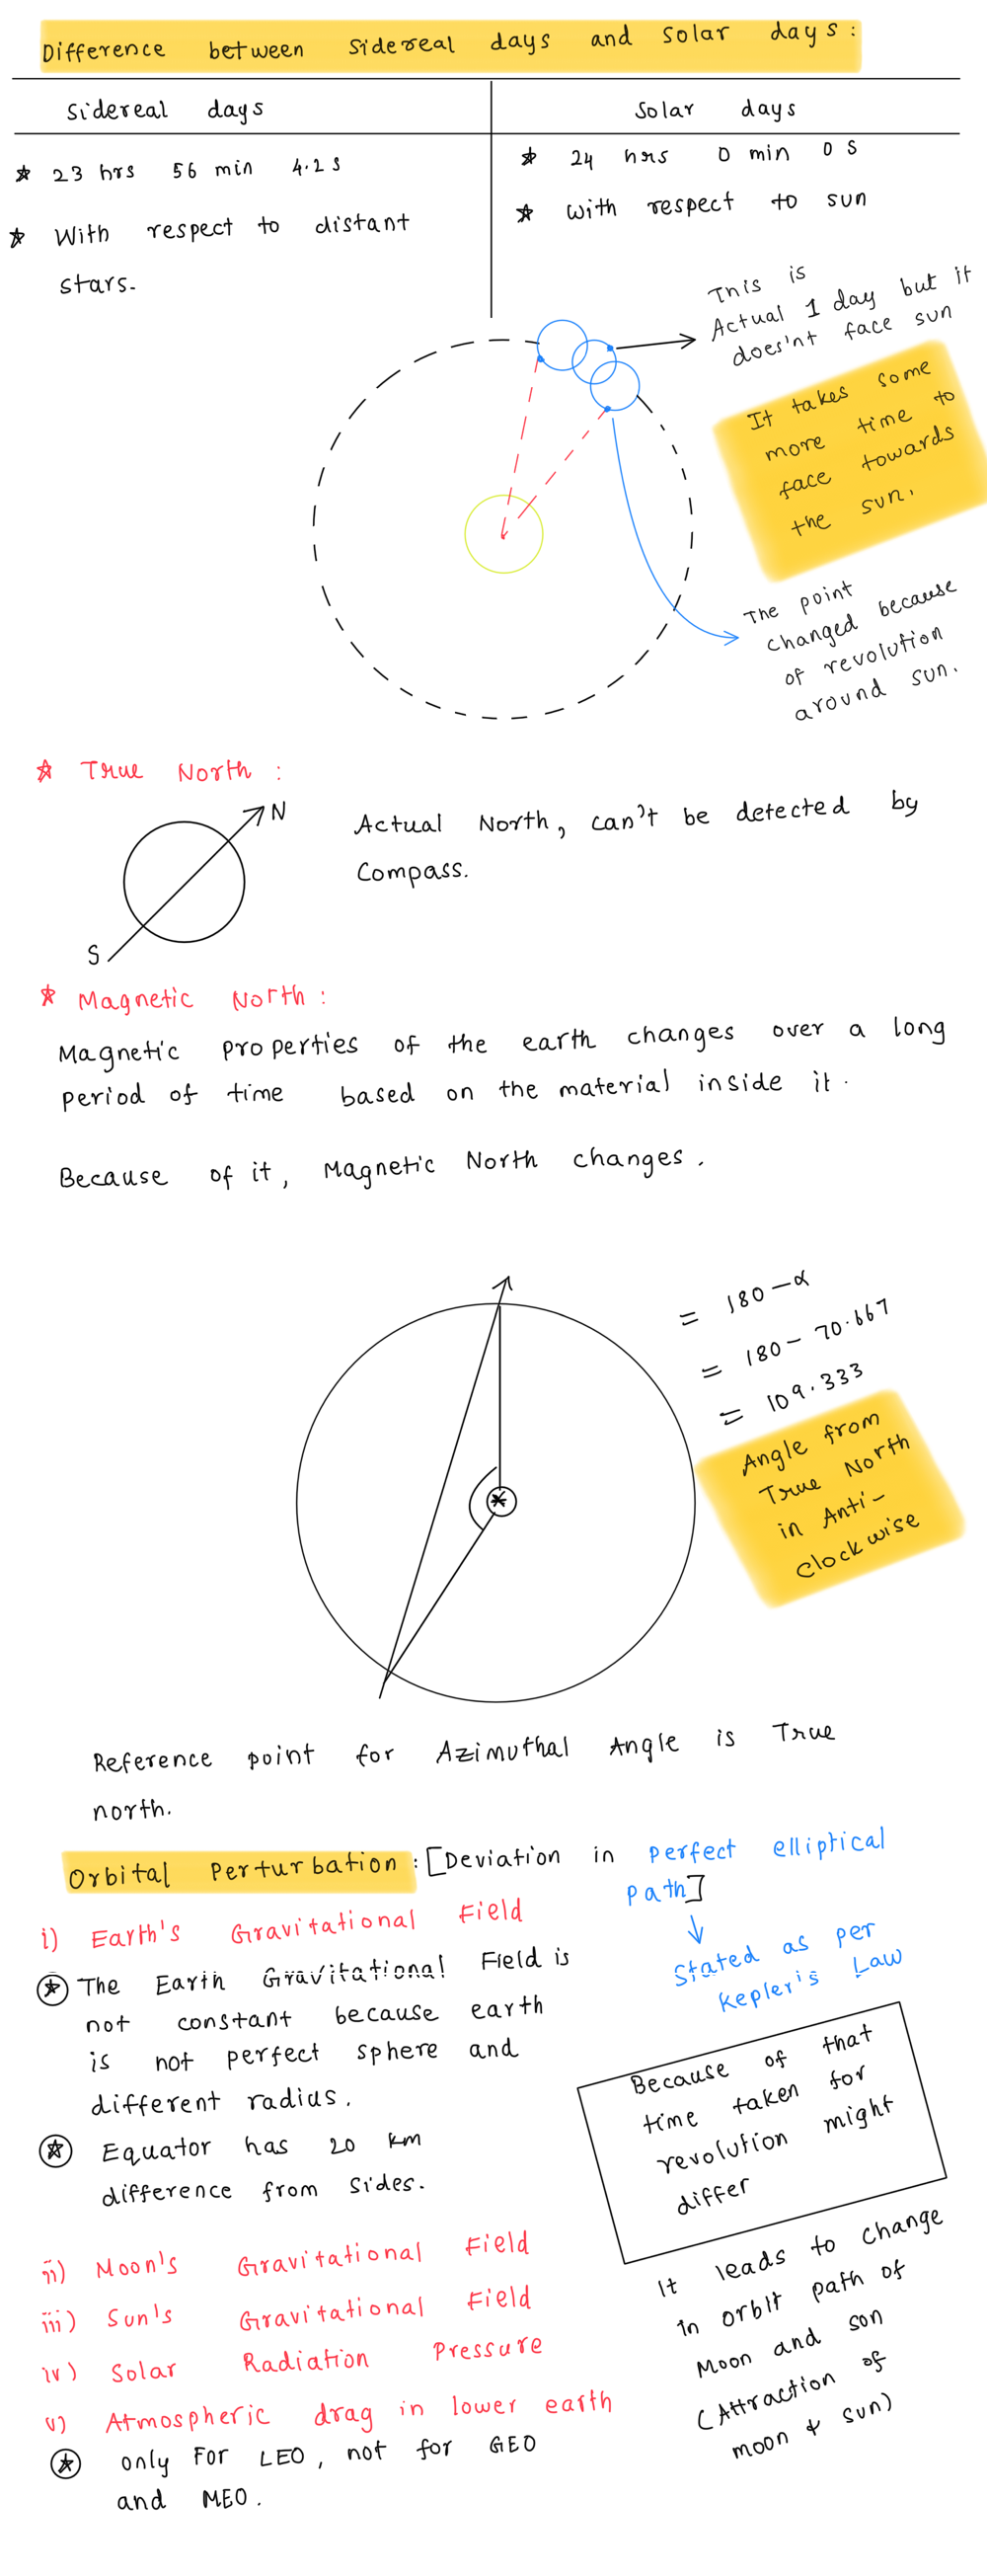 Difference between sidereal days and solar days:
sidereal days
solar days
☆ 23 hrs 56 min 4.2 s
☆ With respect to distant
stars.
☆ 24 hrs 0 min 0 s
☆ with respect to sun
This is
Actual 1 day but it
does'nt face sun
It takes some
more time to
face towards
the sun.
The point
changed because
of revolution
around sun.
☆ True North :
N
S
Actual North, can't be detected by
compass.
☆ Magnetic North :
Magnetic properties of the earth changes over a long
period of time based on the material inside it.
Because of it, Magnetic North changes.
= 180 - α
= 180 - 70.667
= 109.333
Angle from
True North
in Anti-
clockwise
Reference point for Azimuthal Angle is True
north.
Orbital Perturbation : [Deviation in perfect elliptical
path]
Stated as per
Kepler's Law
i) Earth's Gravitational Field
☆ The Earth Gravitational Field is
not constant because earth
is not perfect sphere and
different radius.
☆ Equator has 20 km
difference from sides.
Because of that
time taken for
revolution might
differ
ii) Moon's Gravitational Field
iii) Sun's Gravitational Field
iv) Solar Radiation Pressure
v) Atmospheric drag in lower earth
☆ only For LEO, not for GEO
and MEO.
It leads to change
in orbit path of
Moon and son
(Attraction of
moon & sun)